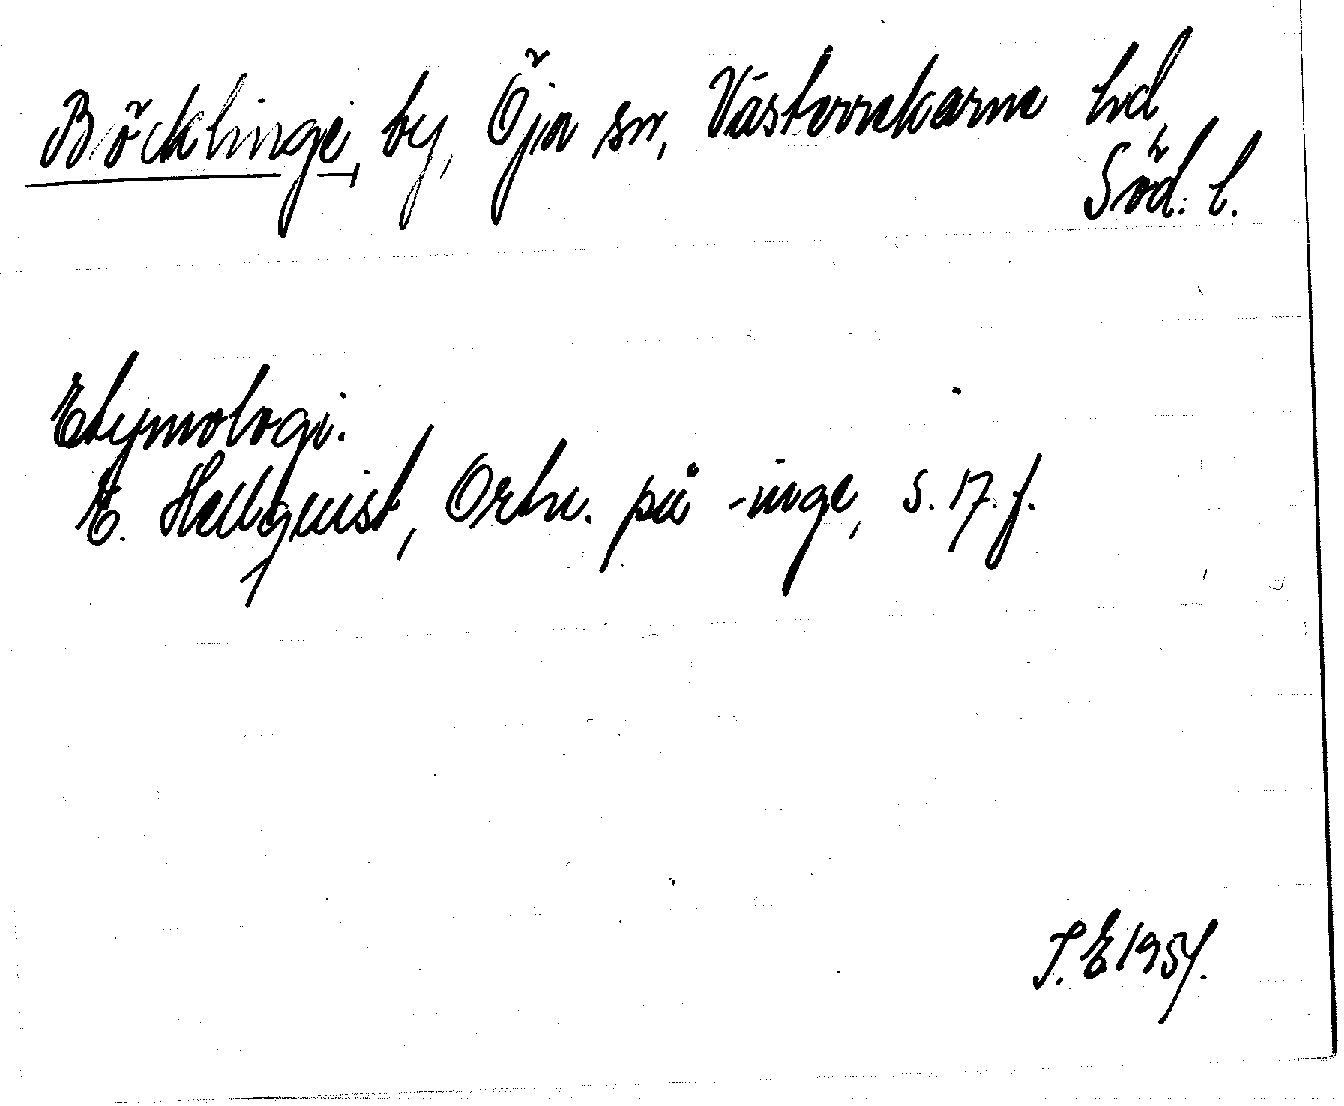 Böcklinge, by, Öja sn, Västerrekarne hd,
Söd. l.
Etymologi.
E. Hellquist, Ortn. på -inge, s. 17 f.
S. E 1951.